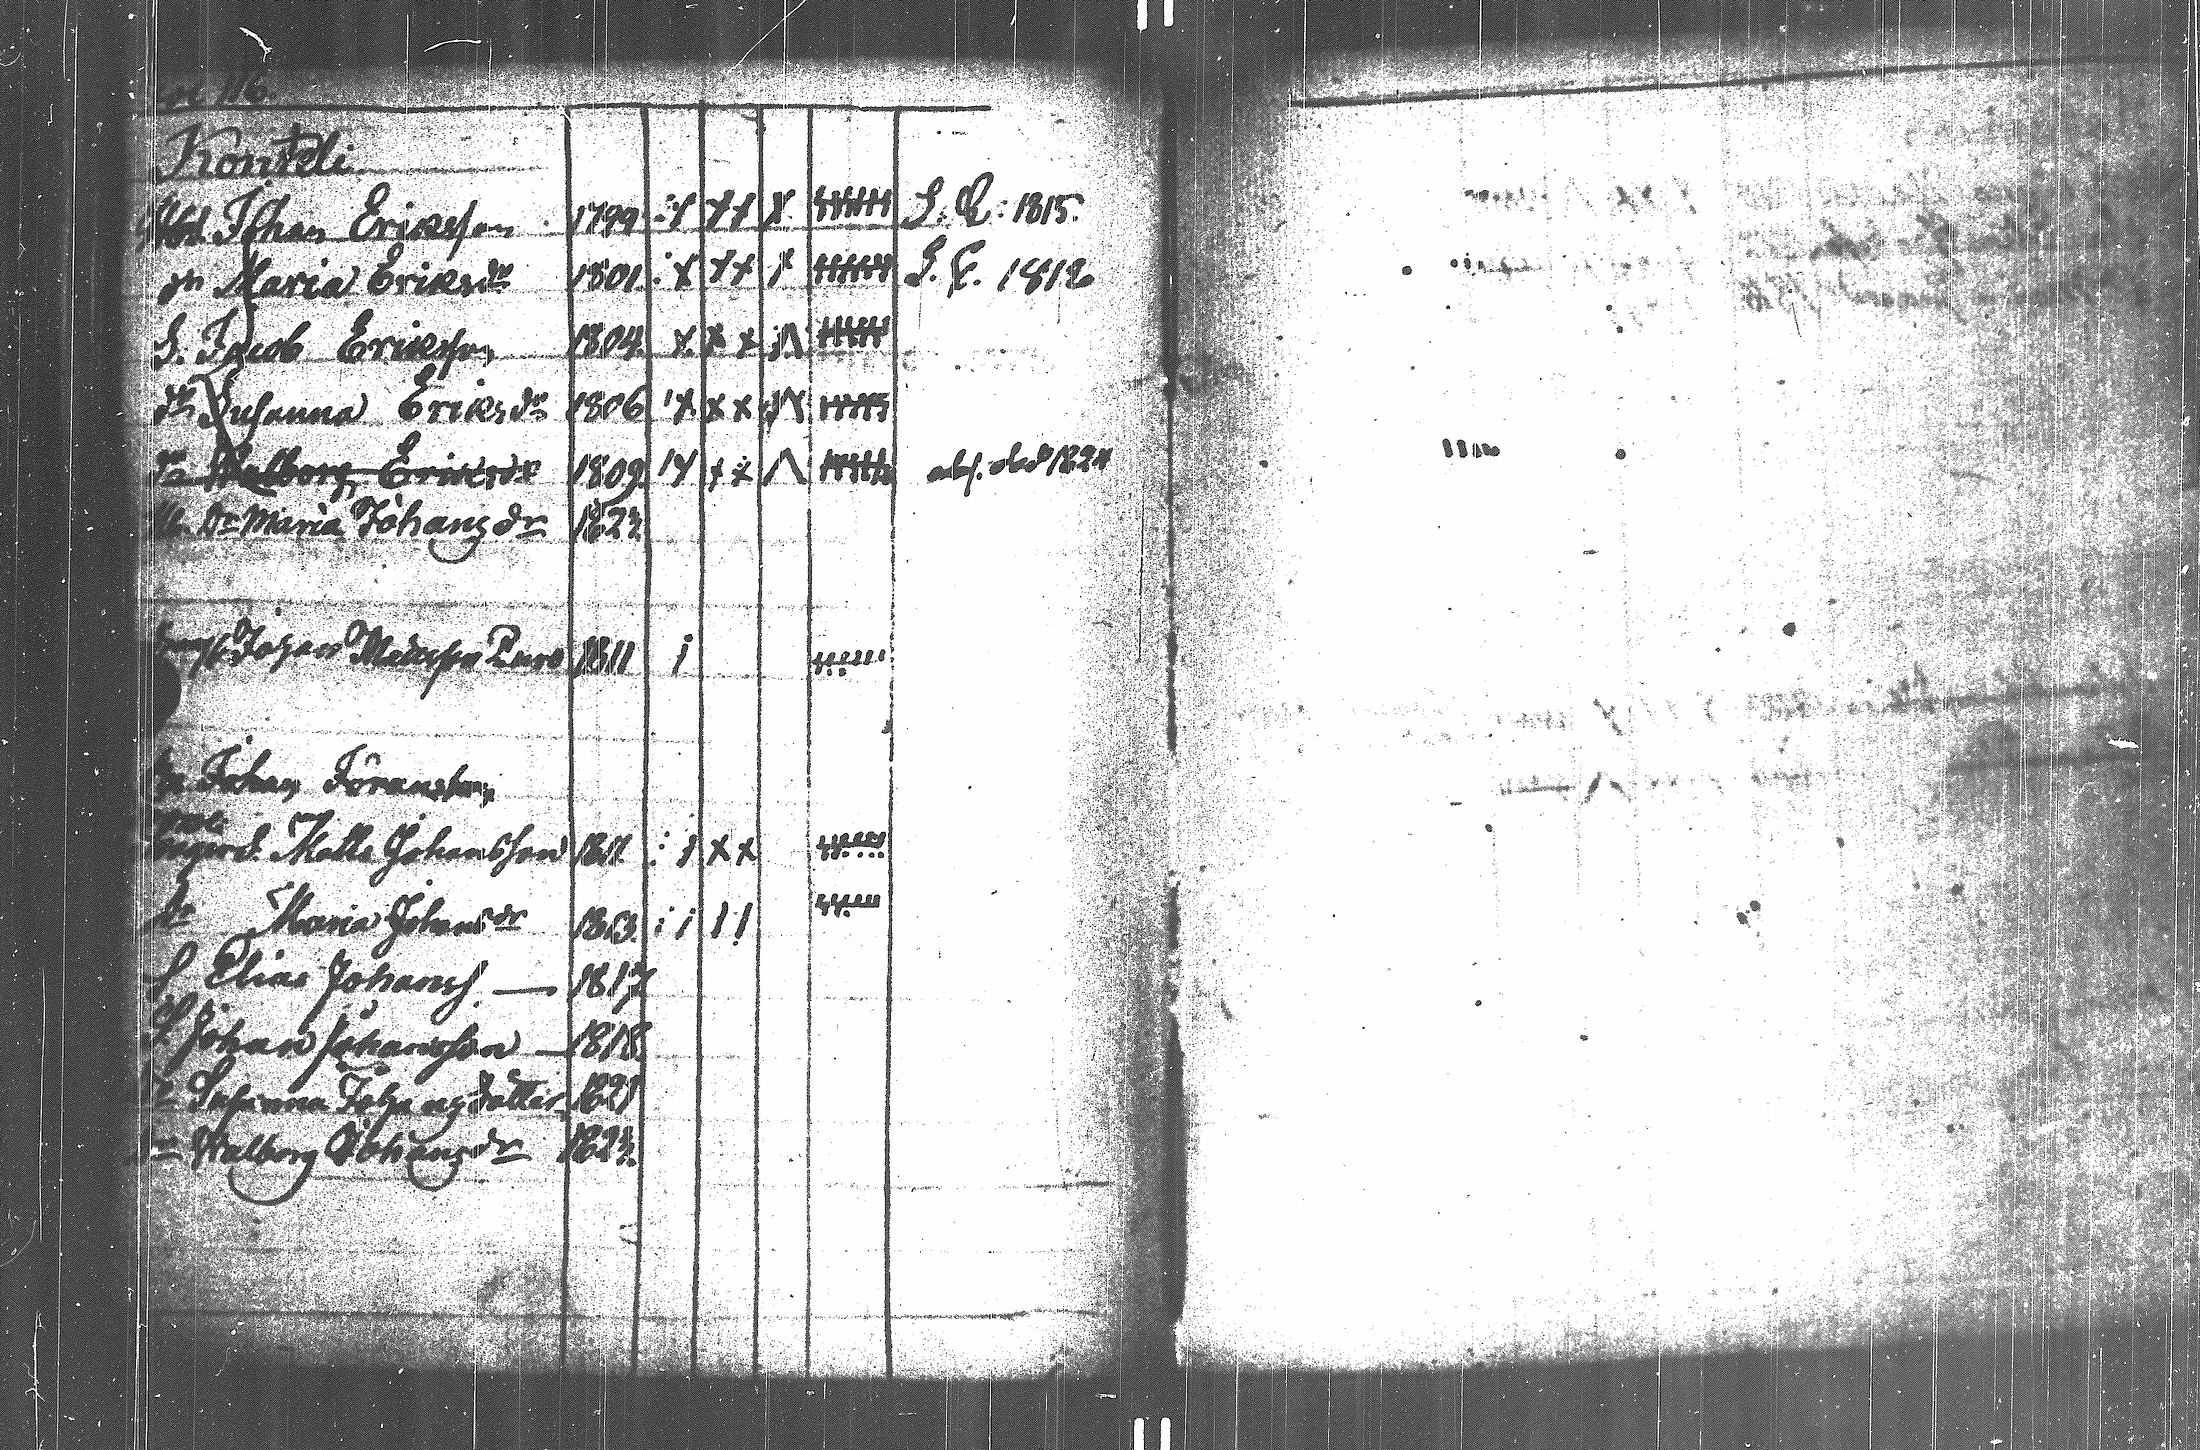 116.
Konteli
Johan Eriksson 1799 S. L. 1815.
dr Maria Eriksdr 1801. S. L. 1812
S. Jacob Eriksson 1804.
dr Susanna Eriksdr 1806
dr Walborg Eriksdr 1809.
dr Maria Johansdr 1823.
Johan Mattsson 1811
Johan Göransson
Matts Johansson 1811.
dr Maria Johansdr 1813.
S Elias Johanss. 1817
S. Johan Johansson 1818
dr Susanna Johansdotter 1821
dr Walborg Johansdr 1823.